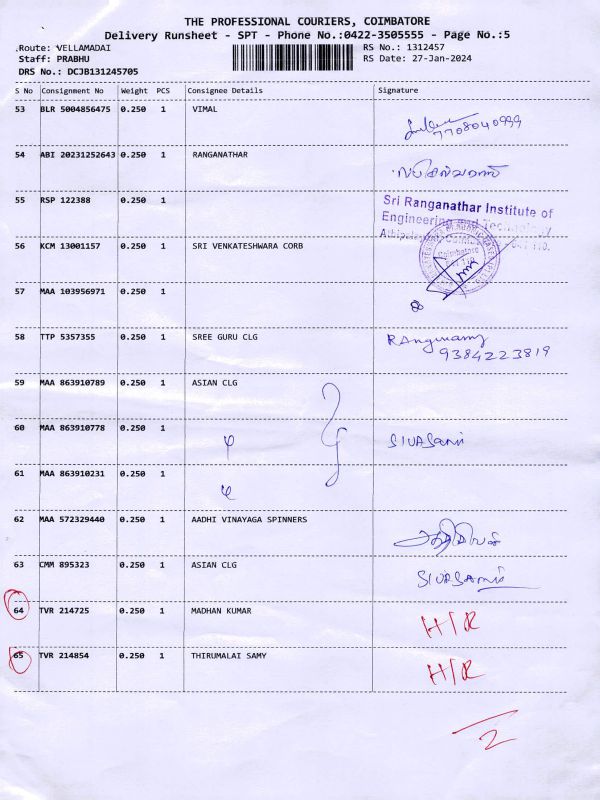 THE PROFESSIONAL COURIERS, COIMBATORE
Delivery Runsheet - SPT - Phone No.:0422-3505555 - Page No.:5
Route: VELLAMADAI RS No.: 1312457
Staff: PRABHU RS Date: 27-Jan-2024
DRS No.: DCJB131245705
S No Consignment No Weight PCS Consignee Details Signature
53 BLR 5004856475 0.250 1 VIMAL
7708040999
54 ABI 20231252643 0.250 1 RANGANATHAR
55 RSP 122388 0.250 1
Sri Ranganathar Institute of
Engineering and Technology
56 KCM 13001157 0.250 1 SRI VENKATESHWARA CORB
Coimbatore
57 MAA 103956971 0.250 1
58 TTP 5357355 0.250 1 SREE GURU CLG
9384223819
59 MAA 863910789 0.250 1 ASIAN CLG
60 MAA 863910778 0.250 1 SIVASami
61 MAA 863910231 0.250 1
62 MAA 572329440 0.250 1 AADHI VINAYAGA SPINNERS
63 CMM 895323 0.250 1 ASIAN CLG SIVASami
64 TVR 214725 0.250 1 MADHAN KUMAR H/R
65 TVR 214854 0.250 1 THIRUMALAI SAMY H/R
2